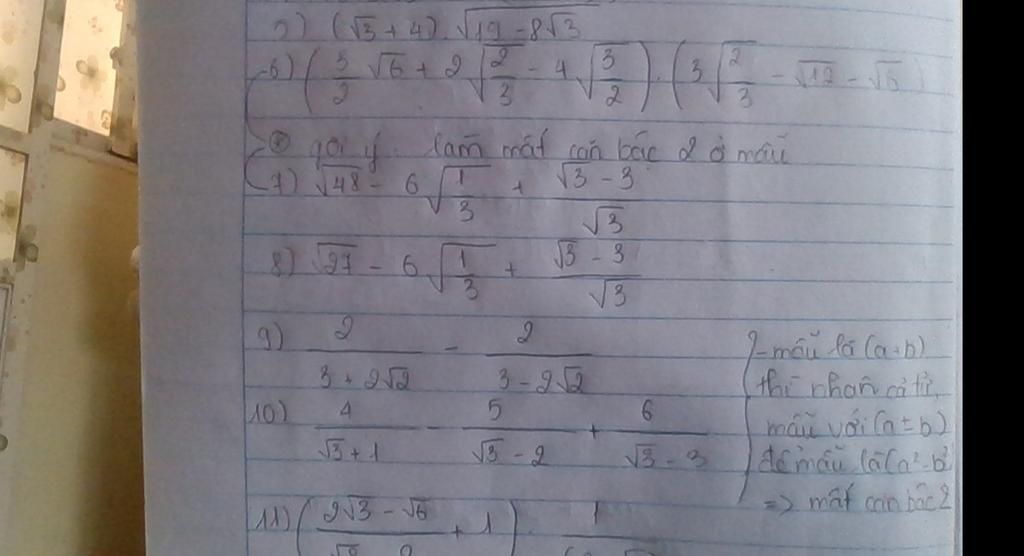 5) (√3 + 4) . √(19 - 8√3)
6) (3/2 √6 + 2√(2/3) - 4√(3/2)) . (3√(2/3) - √12 - √6)
* gợi ý: làm mất căn bậc 2 ở mẫu
7) √48 - 6√(1/3) + (√3 - 3)/√3
8) √27 - 6√(1/3) + (√3 - 3)/√3
9) 2/(3 + 2√2) - 2/(3 - 2√2)
10) 4/(√3 + 1) - 5/(√3 - 2) + 6/(√3 - 3)
- mẫu là (a±b)
thì nhân cả tử,
mẫu với (a±b)
để mẫu là (a²-b²)
=> mất căn bậc 2
11) (2√3 - √6 + 1) . 1